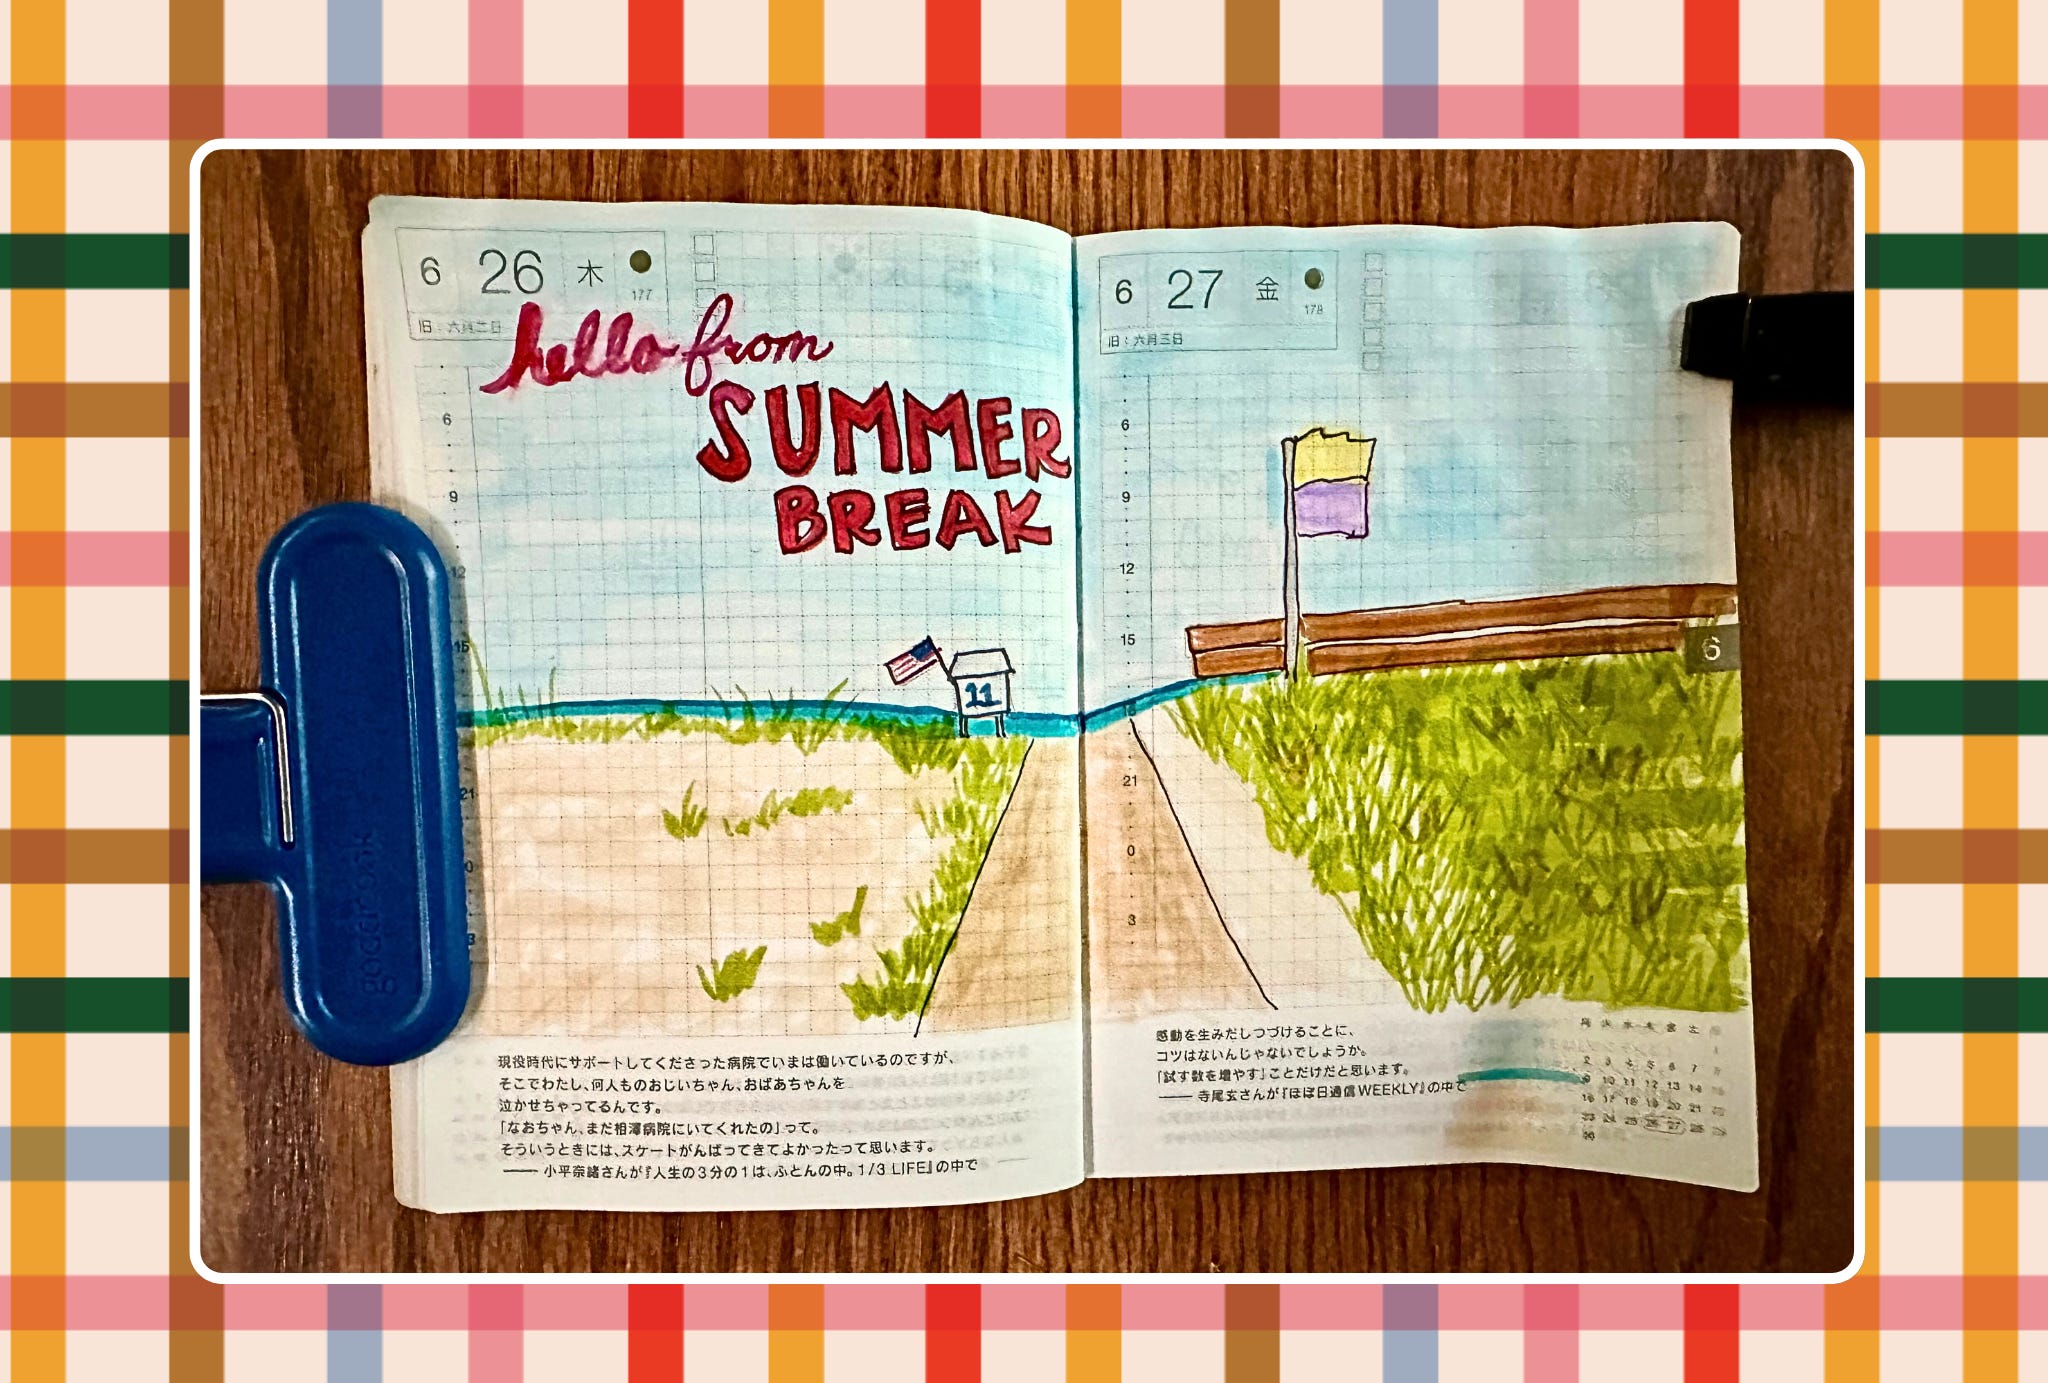 6 26 木
177
旧：六月二日
hello from
SUMMER
BREAK
6
9
12
15
21
0
3
11
goodcook
現役時代にサポートしてくださった病院でいまは働いているのですが、
そこでわたし、何人ものおじいちゃん、おばあちゃんを
泣かせちゃってるんです。
「なおちゃん、まだ相澤病院にいてくれたの」って。
そういうときには、スケートがんばってきてよかったって思います。
── 小平奈緒さんが『人生の3分の1は、ふとんの中。1/3 LIFE』の中で
6 27 金
178
旧：六月三日
6
9
12
15
21
0
3
6
感動を生みだしつづけることに、
コツはないんじゃないでしょうか。
「試す数を増やす」ことだけだと思います。
── 寺尾玄さんが『ほぼ日通信WEEKLY』の中で
月 火 水 木 金 土 日
1
2 3 4 5 6 7 8
9 10 11 12 13 14 15
16 17 18 19 20 21 22
23 24 25 26 27 28 29
30